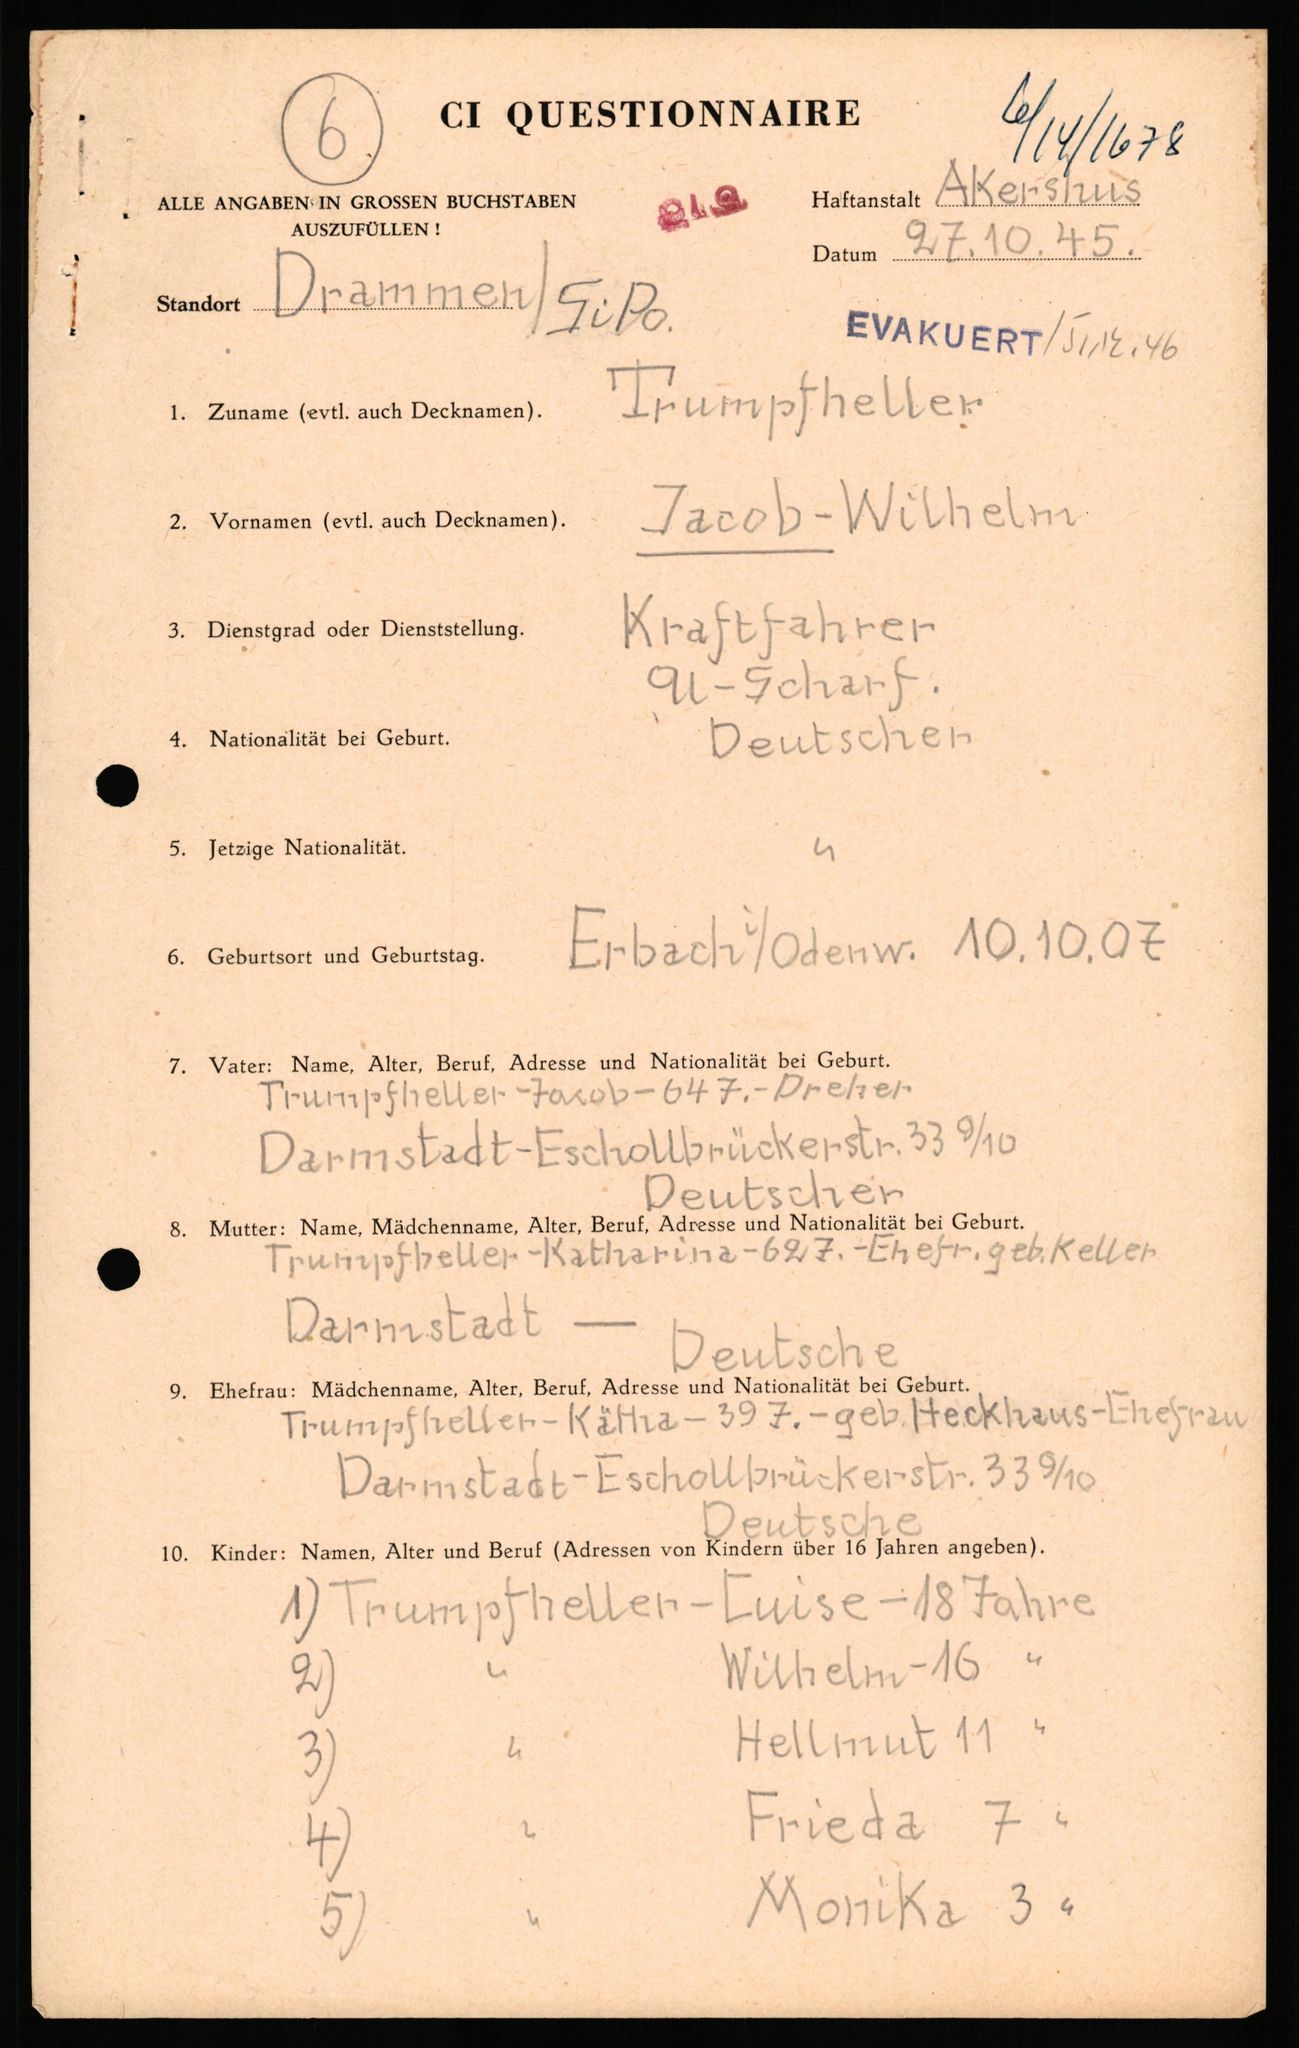 6
CI QUESTIONNAIRE
6/14/1678
ALLE ANGABEN IN GROSSEN BUCHSTABEN
AUSZUFÜLLEN!
Haftanstalt Akershus
Datum 27.10.45.
Standort Drammen/SiPo.
EVAKUERT/5/12.46
1. Zuname (evtl. auch Decknamen). Trumpfheller
2. Vornamen (evtl. auch Decknamen). Jacob-Wilhelm
3. Dienstgrad oder Dienststellung. Kraftfahrer
U-Scharf.
4. Nationalität bei Geburt. Deutscher
5. Jetzige Nationalität. "
6. Geburtsort und Geburtstag. Erbach i/Odenw. 10.10.07
7. Vater: Name, Alter, Beruf, Adresse und Nationalität bei Geburt.
Trumpfheller-Jacob-64 J.-Dreher
Darmstadt-Eschollbrückerstr. 33 9/10
Deutscher
8. Mutter: Name, Mädchenname, Alter, Beruf, Adresse und Nationalität bei Geburt.
Trumpfheller-Katharina-62 J.-Ehefr. geb. Keller
Darmstadt —
Deutsche
9. Ehefrau: Mädchenname, Alter, Beruf, Adresse und Nationalität bei Geburt.
Trumpfheller-Kätha-39 J.-geb. Heckhaus-Ehefrau
Darmstadt-Eschollbrückerstr. 33 9/10
Deutsche
10. Kinder: Namen, Alter und Beruf (Adressen von Kindern über 16 Jahren angeben).
1) Trumpfheller-Luise-18 Jahre
2) " Wilhelm-16 "
3) " Hellmut 11 "
4) " Frieda 7 "
5) " Monika 3 "